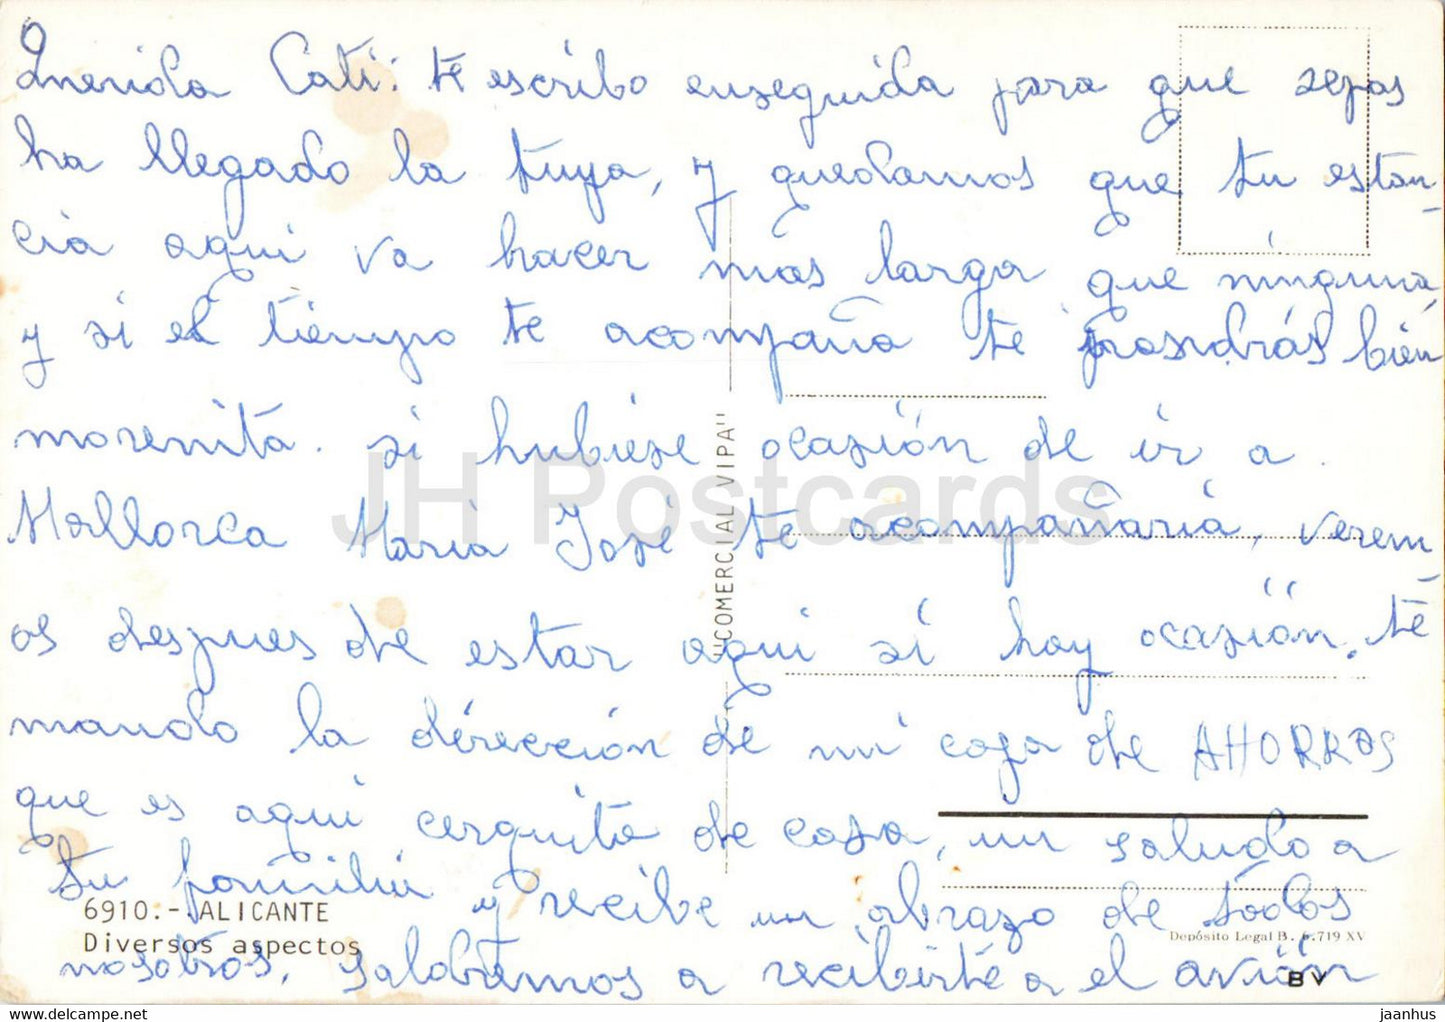 Querida Cati: te escribo enseguida para que sepas
ha llegado la tuya, y quedamos que tu estan-
cia aqui va hacer mas larga que ninguna,
y si el tiempo te acompaña te pondrás bien
morenita. si hubiese ocasión de ir a
Mallorca Maria José te acompañaria, verem
os despues de estar aqui si hay ocasión. te
mando la dirección de mi caja de AHORROS
que es aqui cerquita de casa, un saludo a
tu familia y recibe un abrazo de todos
nosotros, saldremos a recibirte a el avión
6910.- ALICANTE
Diversos aspectos
"COMERCIAL VIPA"
Depósito Legal B. 6.719 XV
BV
JH Postcards
www.delcampe.net
jaanhus